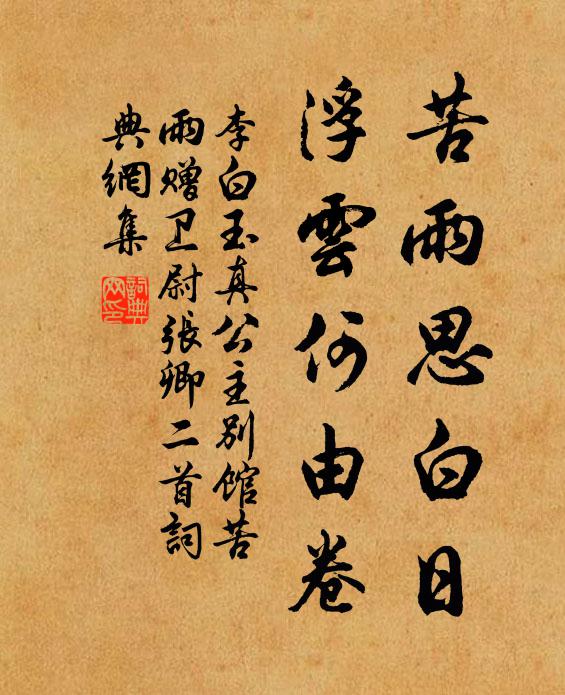 苦雨思白日
浮雲何由卷
李白玉真公主別館苦
雨贈卫尉張卿二首詞
典網集
詞典
网印